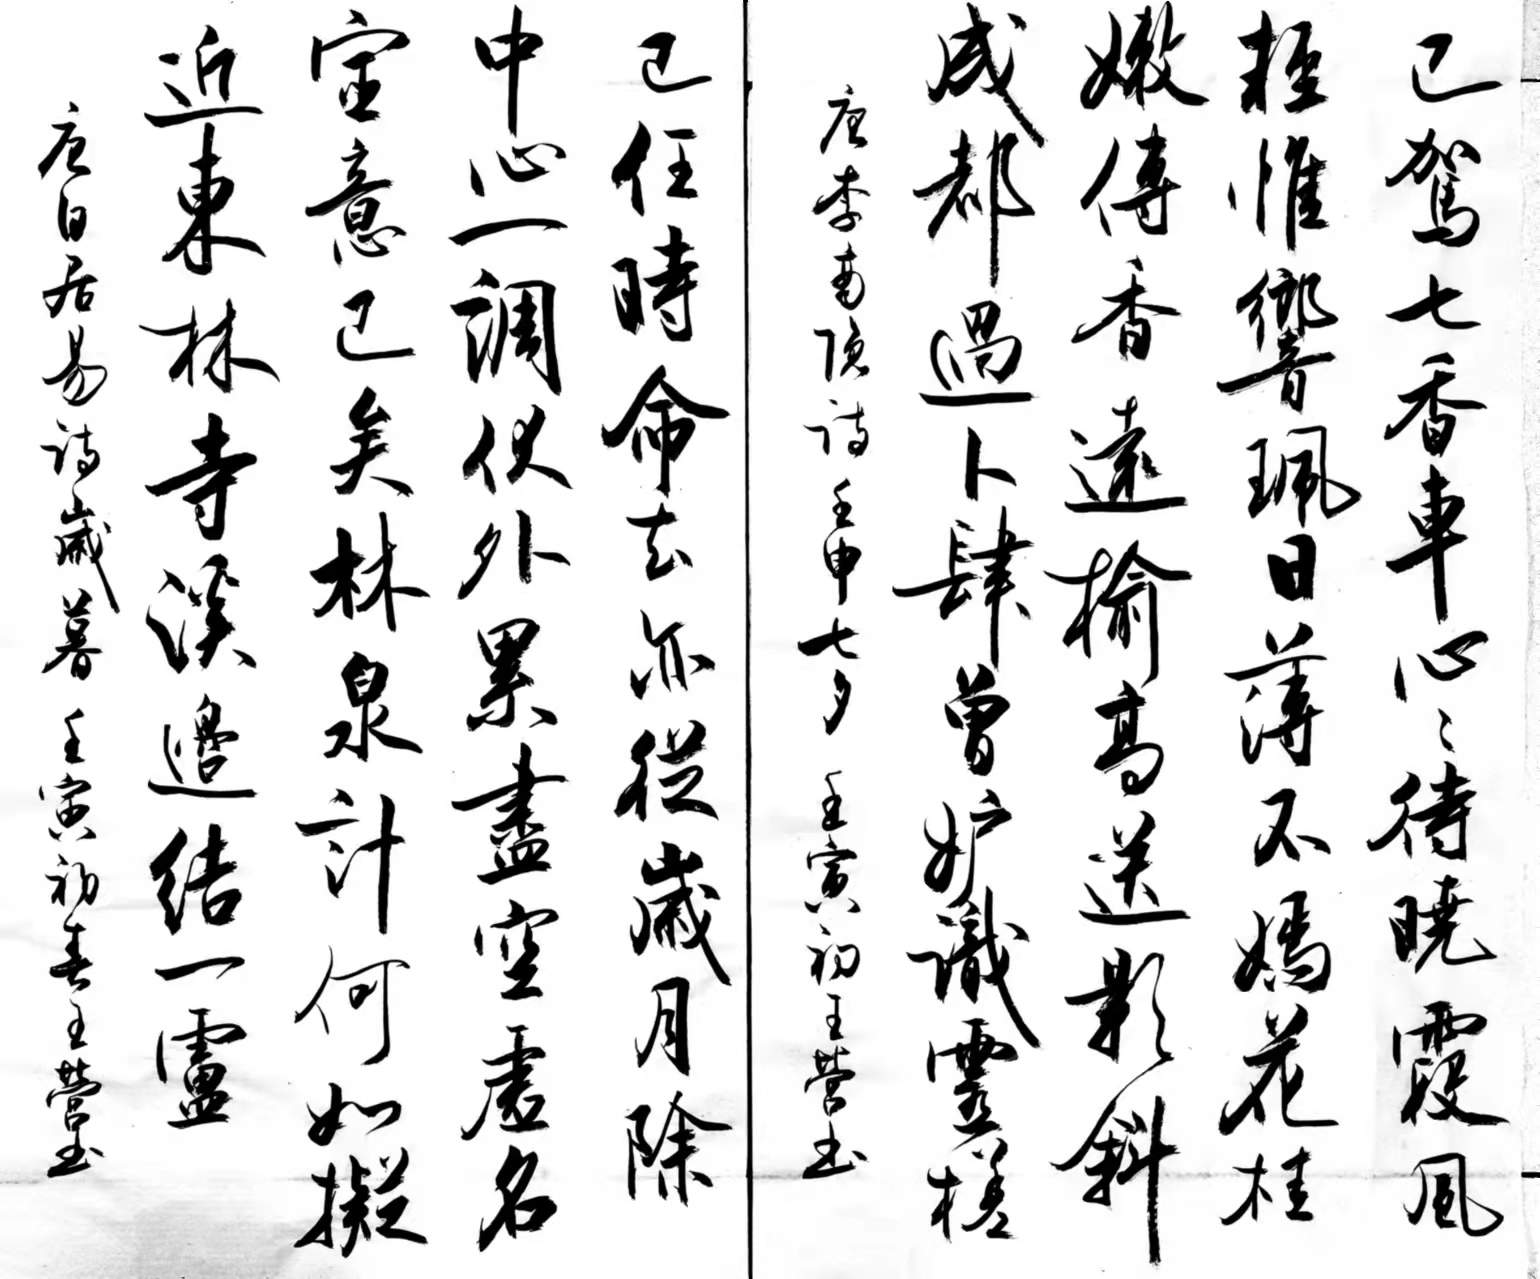 已駕七香車心〻待曉霞風
輕惟響珮日薄不嫣花桂
嫩傳香遠榆高送影斜
成都過卜肆曾妒識靈槎
唐李商隱詩壬申七夕 壬寅初王營
已任時命去亦從歲月除
中心一調伏外累盡空虛名
宦意已矣林泉計何如擬
近東林寺溪邊結一盧
唐白居易詩歲暮 壬寅初春王營